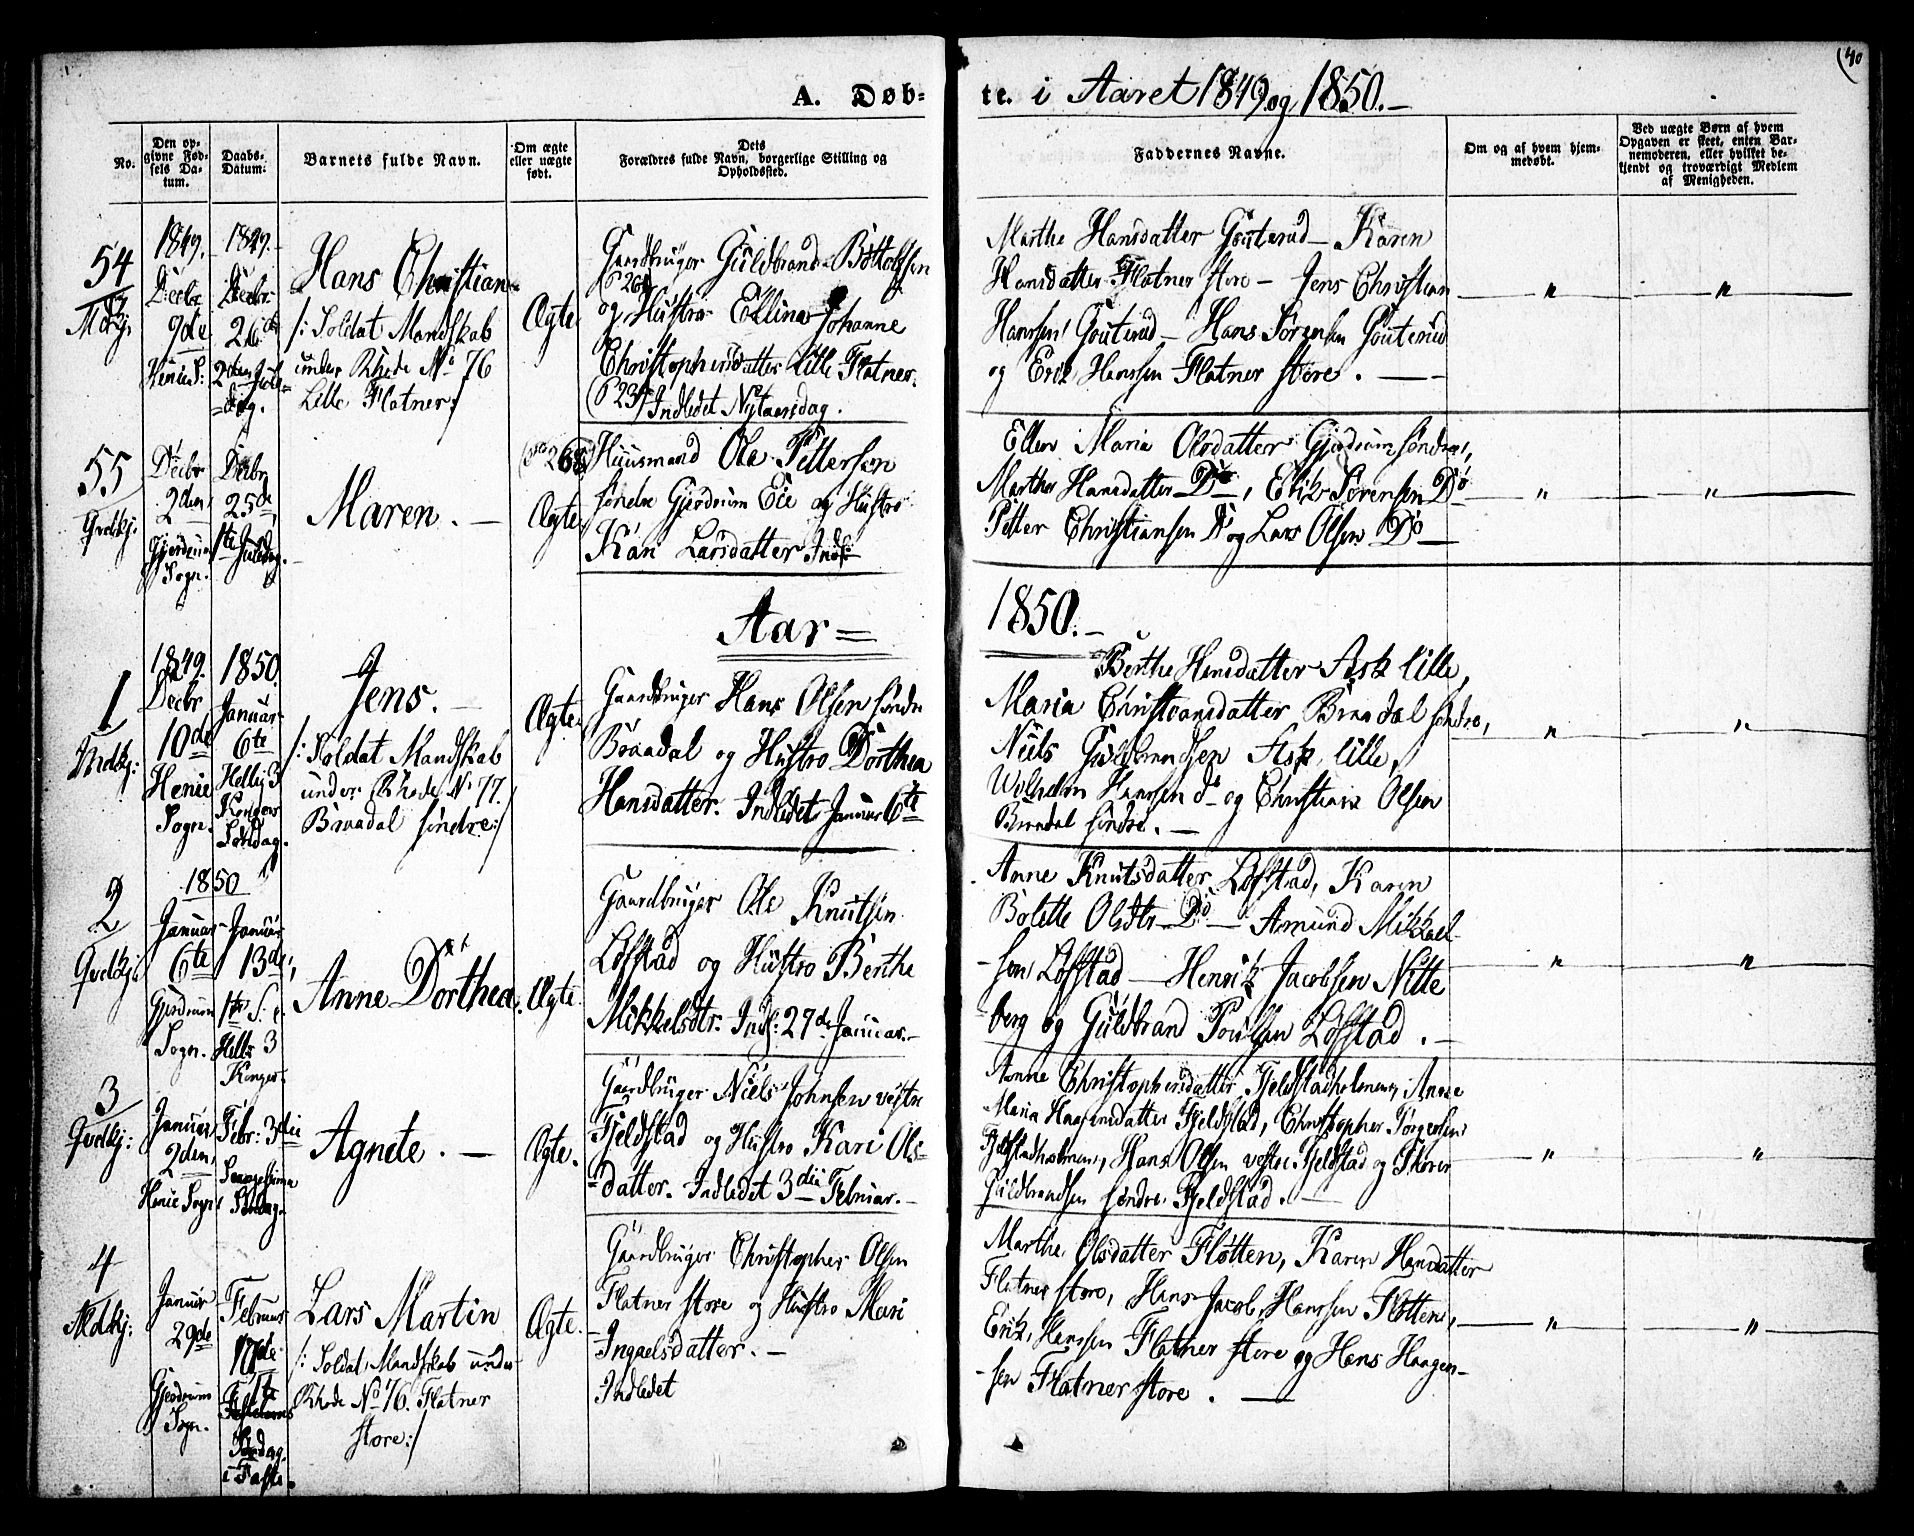 40
A. Døb-
te. i Aaret 1849 og 1850.-
No.
Den op-
givne Fød-
sels Da-
tum.
Daabs-
Datum.
Barnets fulde Navn.
Om ægte
eller uægte
født.
Dets
Forældres fulde Navn, borgerlige Stilling og
Opholdssted.
Faddernes Navne.
Om og af hvem hjem-
medøbt.
Ved uægte Børn af hvem
Opgaven er skeet, enten Bar-
nemoderen, eller hvilket be-
kjendt og troværdigt Medlem
af Menigheden.
54
Mdkj.
1849.
Decbr
9de
Henie S:
1849.
Decbr
26de
2den Jule-
=dag.
Hans Christian
/: Soldat Mandskab
under Rhode No 76
Lille Flatner:/
Ægte
Gaardbruger Guldbrand Bottolfsen
og Hustro Ellina Johanne
Christophersdatter lille Flatner.
Indledet Nytaarsdag.
Marthe Hansdatter Gouterud - Karen
Hansdatter Flatner store - Jens Christian
Hanssen Gouterud - Hans Sørensen Gouterud
og Erik Hanssen Flatner store. -
55
Qvdkj.
Decbr
2den
Gjerdrum
Sogn.
Decbr
25de
1ste Juledag.
Maren. -
Ægte
Huusmand Ole Pettersen
søndre Gjerdrum Eie og Hustro
Kari Larsdatter Indl:
Ellen Maria Olsdatter Gjerdrum søndre,
Marthe Hansdatter Do, Erik Sørensen Do
Petter Christiansen Do og Lars Olsen Do -
Aar =
1850. -
1
Mdkj:
1849.
Decbr
10de
Henie
Sogn.
1850.
Januar
6te
Hellig 3
Kongers
Søndag.
Jens. -
/: Soldat Mandskab
under Rhode No 77.
Braadal søndre:/
Ægte
Gaardbruger Hans Olsen søndre
Braadal og Hustro Dorthea
Hansdatter. Indledet Januar 6te
Berthe Hansdatter Ask lille,
Maria Christiansdatter Braadal søndre,
Niels Guldbrandsen Ask lille,
Wilhelm Hanssen do og Christian Olsen
Braadal søndre. -
2
Qvdkj:
1850
Januar
6te
Gjerdrum
Sogn.
Januar
13de,
1ste S: e.
Hell: 3
Konger.
Anne Dorthea.
Ægte.
Gaardbruger Ole Knutsen
Løfstad og Hustro Berthe
Mikkelsdtr. Indl: 27de Januar. -
Anne Knutsdatter Løfstad, Karen
Bolette Olsdtr. Do - Amund Mikkel-
-sen Løfstad - Henrik Jacobsen Nitte
berg og Guldbrand Poulsen Løfstad. -
3
Qvdkj:
Januar
2den
Henie Sogn
Febr: 3die
Søndag.
Agnete. -
Ægte.
Gaardbruger Niels Johnsen vestre
Fjeldstad og Hustro Kari Ols-
=datter. Indledet 3die Februar. -
Anne Christophersdatter Fjeldstadholmen, Anne
Maria Haagensdatter Fjeldstad, Christopher Jørgensen
Fjeldstadholmen, Hans Olsen vestre Fjeldstad og Thorer
Guldbrandsen søndre Fjeldstad. -
4
Mdkj:
Januar
29de
Gjerdrum
Sogn.
Februar
17de
Søndag
i Faste.
Lars Martin
/: Soldat Mandskab under
Rhode No 76. Flatner
store:/
Ægte.
Gaardbruger Christopher Olsen
Flatner store og Hustro Mari
Ingaelsdatter. -
Indledet
Marthe Olsdatter Fløtten, Karen Hansdatter
Flatner store, Hans Jacob Hanssen Fløtten,
Erik Hanssen Flatner store og Hans Haagen-
-sen Flatner store. -